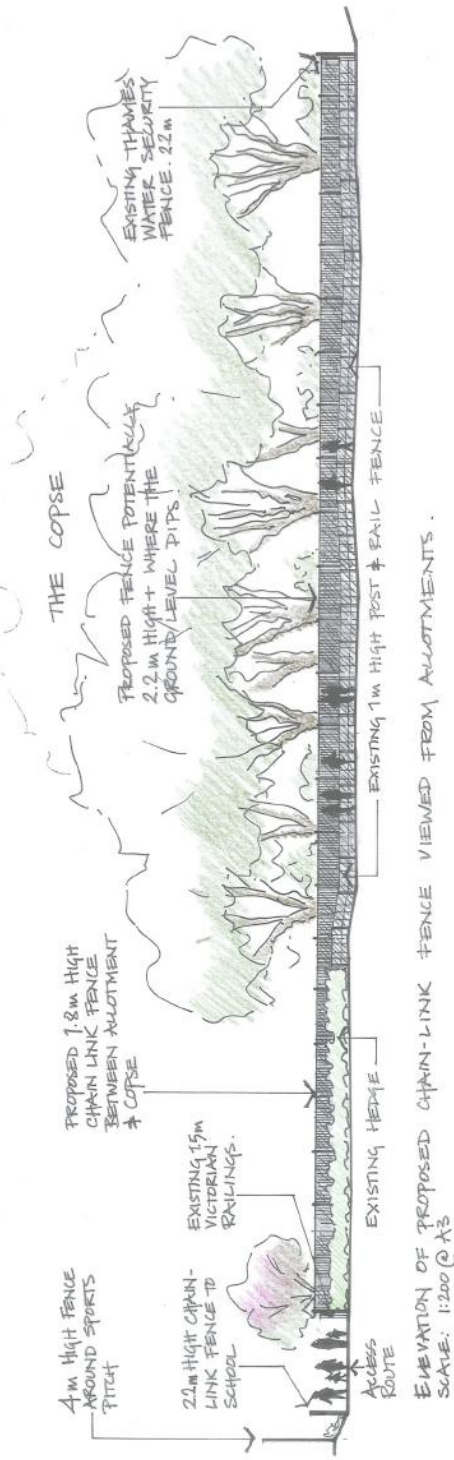 4m HIGH FENCE
AROUND SPORTS
PITCH
2.2m HIGH CHAIN-
LINK FENCE TO
SCHOOL
ACCESS
ROUTE
EXISTING 1.5m
VICTORIAN
RAILINGS.
PROPOSED 1.8m HIGH
CHAIN LINK FENCE
BETWEEN ALLOTMENT
& COPSE
EXISTING HEDGE
THE COPSE
PROPOSED FENCE POTENTIALLY
2.2m HIGH+ WHERE THE
GROUND LEVEL DIPS
EXISTING THAMES
WATER SECURITY
FENCE. 2.2m
EXISTING 1m HIGH POST & RAIL FENCE
ELEVATION OF PROPOSED CHAIN-LINK FENCE VIEWED FROM ALLOTMENTS.
SCALE: 1:200 @ A3